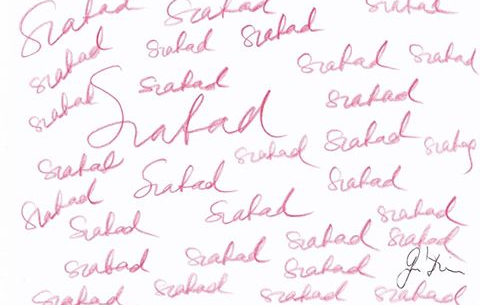 Szabad Szabad Szabad
Szabad Szabad
Szabad Szabad Szabad Szabad
Szabad Szabad Szabad
Szabad Szabad Szabad Szabad
Szabad Szabad
Szabad Szabad Szabad
Szabad Szabad Szabad Szabad
Szabad Szabad
Szabad Szabad Szabad Szabad